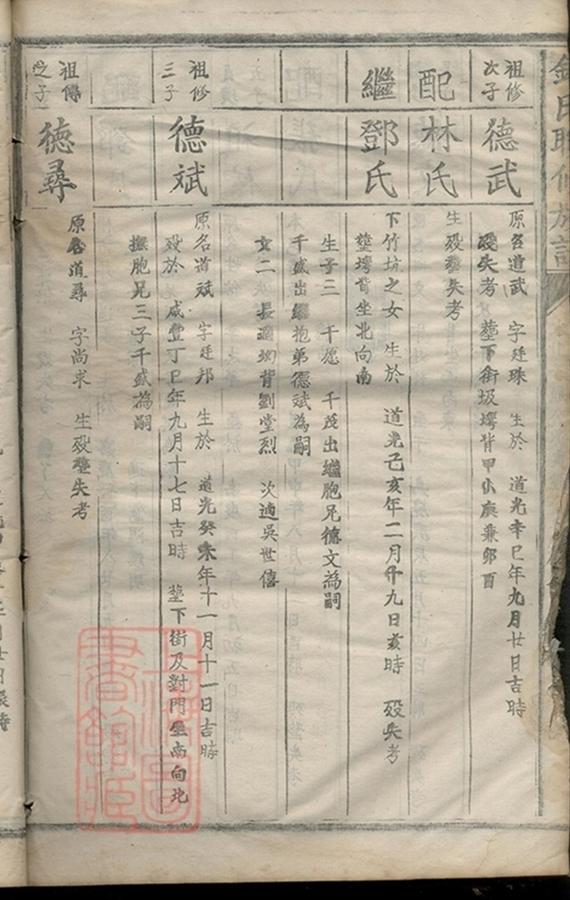 祖修次子
德武
原名道武 字廷珠 生於 道光辛巳年九月廿日吉時
歿失考 塟下街圾塆背甲山庚兼卯酉
配
林氏
生歿塟失考
繼
鄧氏
下竹坑之女 生於 道光己亥年二月廿九日亥時 歿失考
塟塆背坐北向南
生子三 千 千茂出繼胞兄德文為嗣
千盛出繼抱弟德斌為嗣
女二 長適坳背劉堂烈 次適吳世僖
祖修三子
德斌
原名道斌 字廷邦 生於 道光癸未年十一月十一日吉時
歿於 咸豐丁巳年九月十七日吉時 塟下街及對門坐南向北
撫胞兄三子千盛為嗣
祖傳之子
德尋
原名道尋 字尚求 生歿塟失考